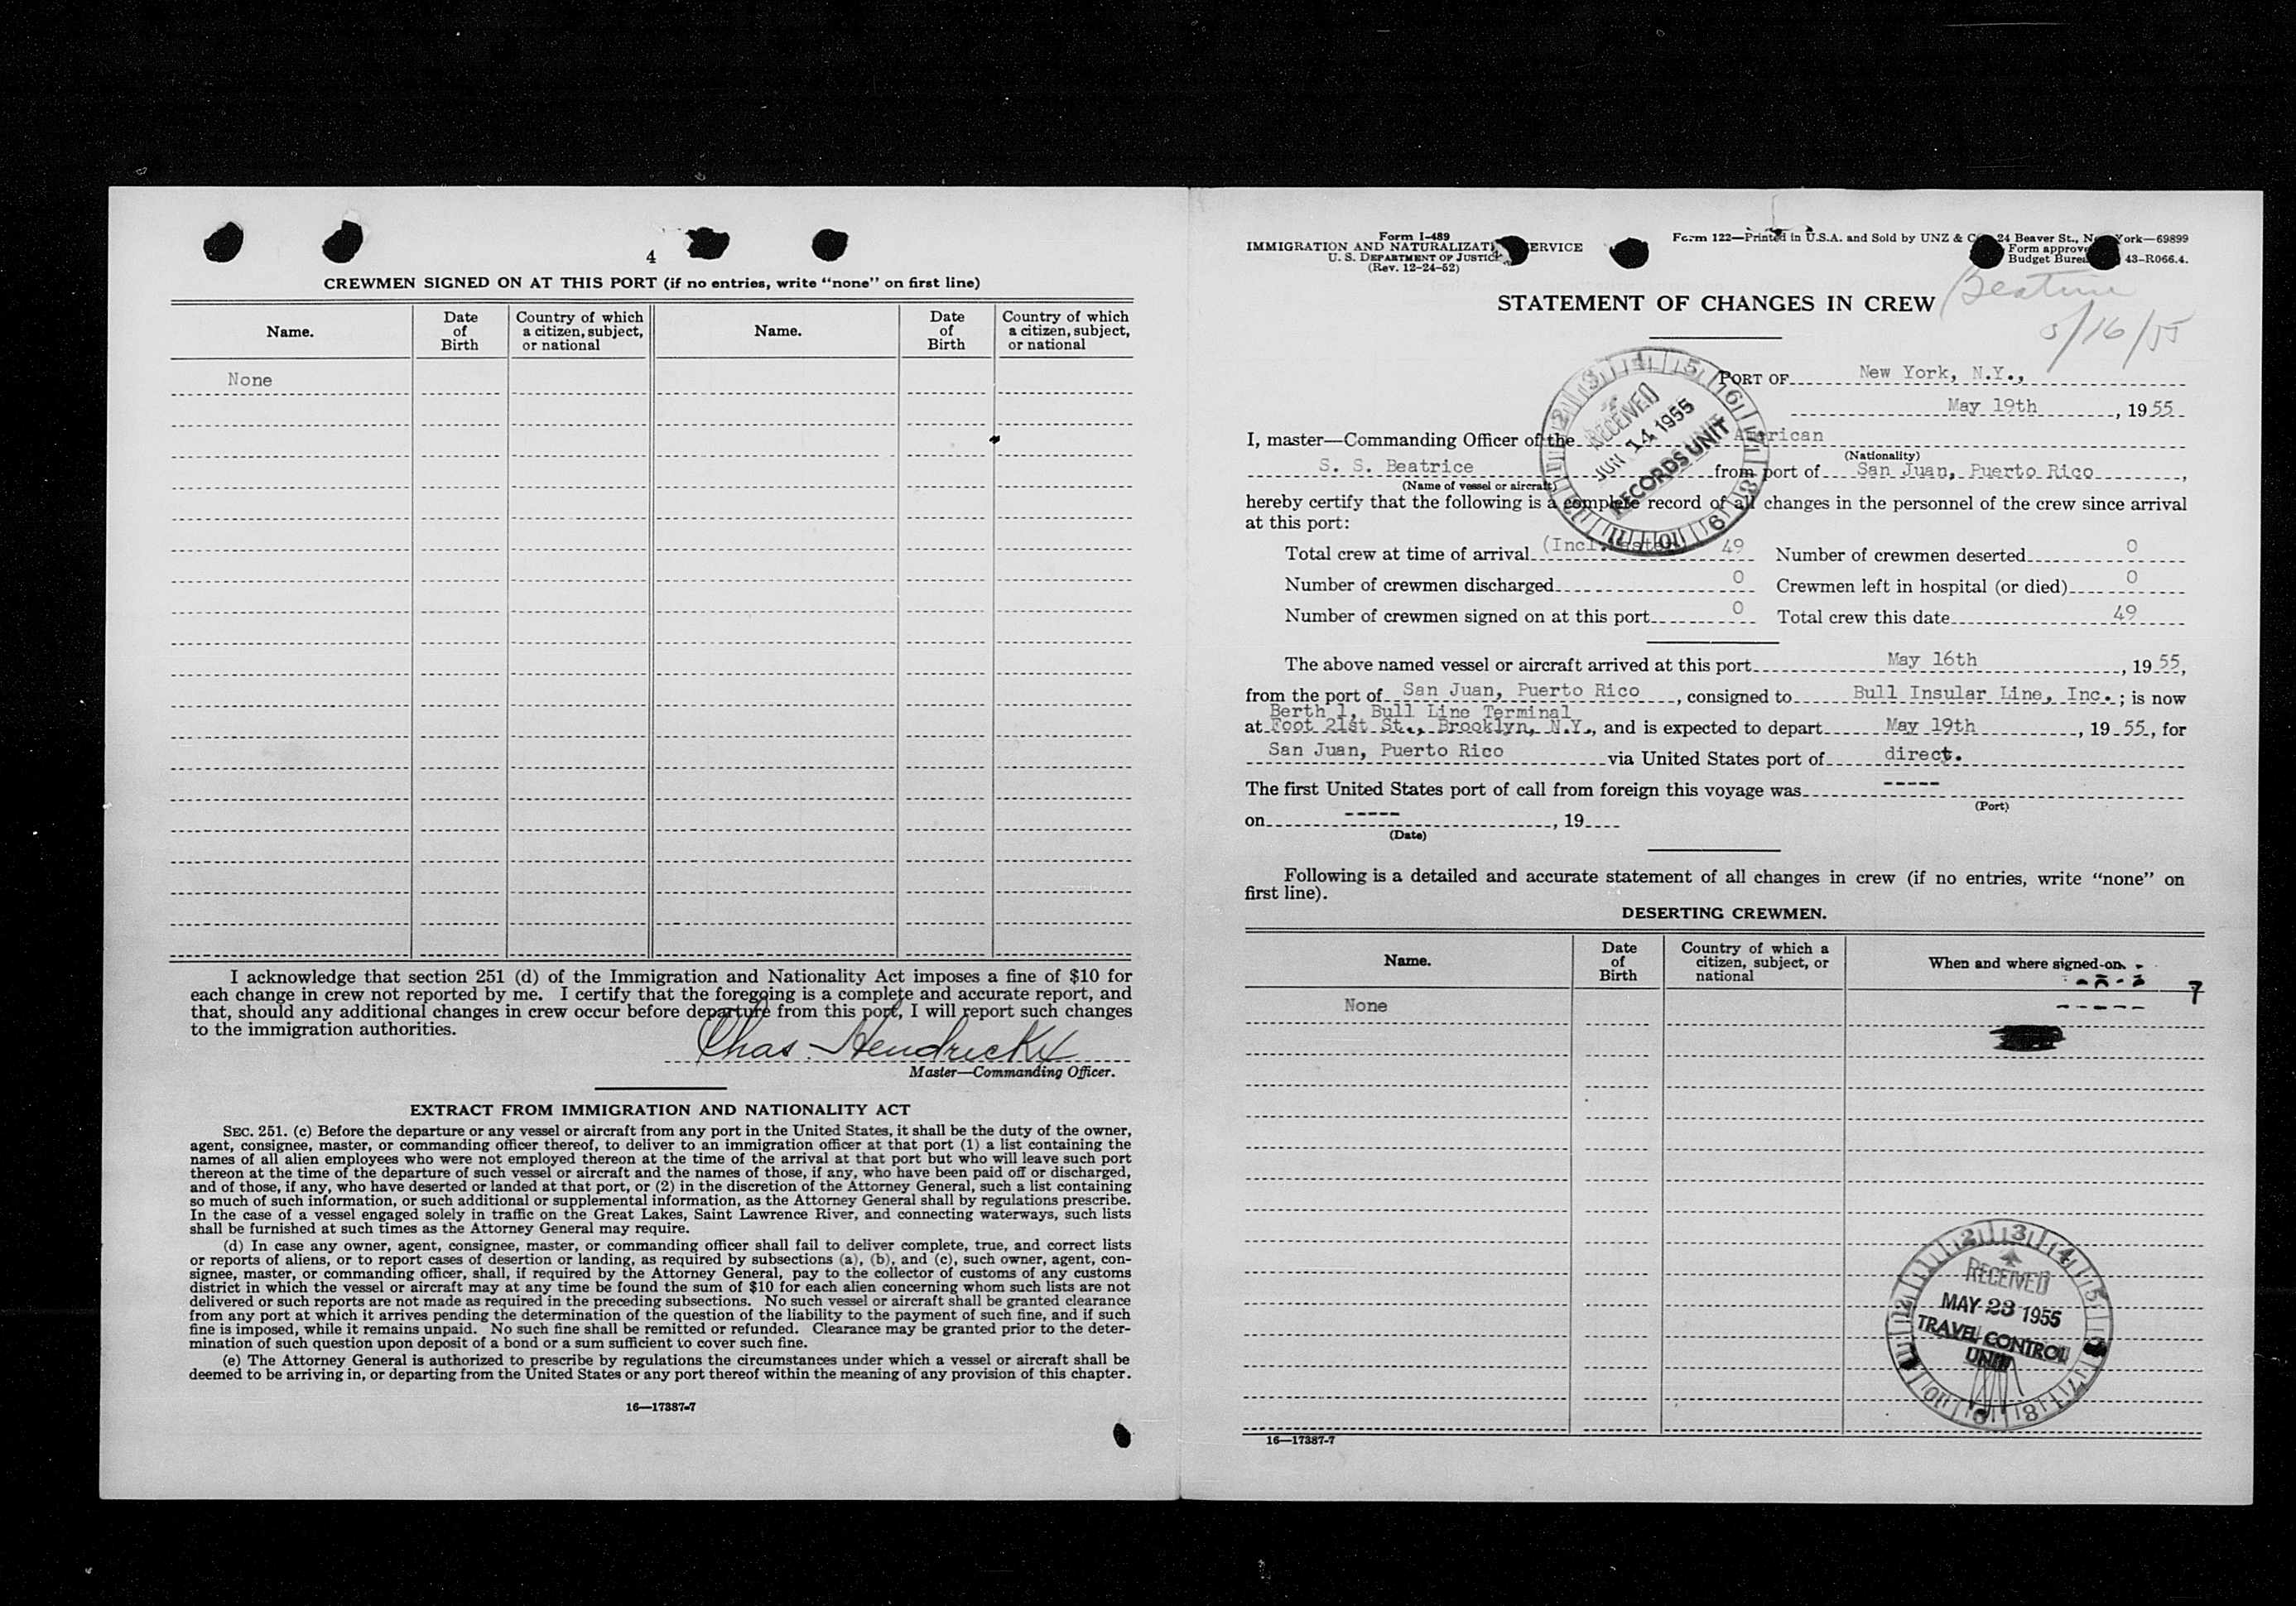 4
CREWMEN SIGNED ON AT THIS PORT (if no entries, write "none" on first line)
Name.
Date
of
Birth
Country of which
a citizen, subject,
or national
Name.
Date
of
Birth
Country of which
a citizen, subject,
or national
None
I acknowledge that section 251 (d) of the Immigration and Nationality Act imposes a fine of $10 for
each change in crew not reported by me. I certify that the foregoing is a complete and accurate report, and
that, should any additional changes in crew occur before departure from this port, I will report such changes
to the immigration authorities.
Chas. Hendrickx
Master—Commanding Officer.
EXTRACT FROM IMMIGRATION AND NATIONALITY ACT
SEC. 251. (c) Before the departure or any vessel or aircraft from any port in the United States, it shall be the duty of the owner,
agent, consignee, master, or commanding officer thereof, to deliver to an immigration officer at that port (1) a list containing the
names of all alien employees who were not employed thereon at the time of the arrival at that port but who will leave such port
thereon at the time of the departure of such vessel or aircraft and the names of those, if any, who have been paid off or discharged,
and of those, if any, who have deserted or landed at that port, or (2) in the discretion of the Attorney General, such a list containing
so much of such information, or such additional or supplemental information, as the Attorney General shall by regulations prescribe.
In the case of a vessel engaged solely in traffic on the Great Lakes, Saint Lawrence River, and connecting waterways, such lists
shall be furnished at such times as the Attorney General may require.
(d) In case any owner, agent, consignee, master, or commanding officer shall fail to deliver complete, true, and correct lists
or reports of aliens, or to report cases of desertion or landing, as required by subsections (a), (b), and (c), such owner, agent, con-
signee, master, or commanding officer, shall, if required by the Attorney General, pay to the collector of customs of any customs
district in which the vessel or aircraft may at any time be found the sum of $10 for each alien concerning whom such lists are not
delivered or such reports are not made as required in the preceding subsections. No such vessel or aircraft shall be granted clearance
from any port at which it arrives pending the determination of the question of the liability to the payment of such fine, and if such
fine is imposed, while it remains unpaid. No such fine shall be remitted or refunded. Clearance may be granted prior to the deter-
mination of such question upon deposit of a bond or a sum sufficient to cover such fine.
(e) The Attorney General is authorized to prescribe by regulations the circumstances under which a vessel or aircraft shall be
deemed to be arriving in, or departing from the United States or any port thereof within the meaning of any provision of this chapter.
16—17387-7
Form I-489
IMMIGRATION AND NATURALIZATI ERVICE
U. S. DEPARTMENT OF JUSTICE
(Rev. 12-24-52)
Form 122—Printed in U.S.A. and Sold by UNZ & C 24 Beaver St., N York—69899
Form approve
Budget Burea 43-R066.4.
STATEMENT OF CHANGES IN CREW
Beatrice
5/16/55
PORT OF New York, N.Y.,
May 19th, 1955
I, master—Commanding Officer of the American
(Nationality)
S. S. Beatrice from port of San Juan, Puerto Rico,
(Name of vessel or aircraft)
RECEIVED
JUN 14 1955
RECORDS UNIT
hereby certify that the following is a complete record of all changes in the personnel of the crew since arrival
at this port:
Total crew at time of arrival (Incl. Master) 49 Number of crewmen deserted 0
Number of crewmen discharged 0 Crewmen left in hospital (or died) 0
Number of crewmen signed on at this port 0 Total crew this date 49
The above named vessel or aircraft arrived at this port May 16th, 1955,
from the port of San Juan, Puerto Rico, consigned to Bull Insular Line, Inc.; is now
Berth 1, Bull Line Terminal
at Foot 21st St., Brooklyn, N.Y., and is expected to depart May 19th, 1955, for
San Juan, Puerto Rico via United States port of direct.
The first United States port of call from foreign this voyage was -----
(Port)
on -----, 19
(Date)
Following is a detailed and accurate statement of all changes in crew (if no entries, write "none" on
first line).
DESERTING CREWMEN.
Name.
Date
of
Birth
Country of which a
citizen, subject, or
national
When and where signed-on.
7
None
-----
RECEIVED
MAY 23 1955
TRAVEL CONTROL
UNIT
16—17387-7